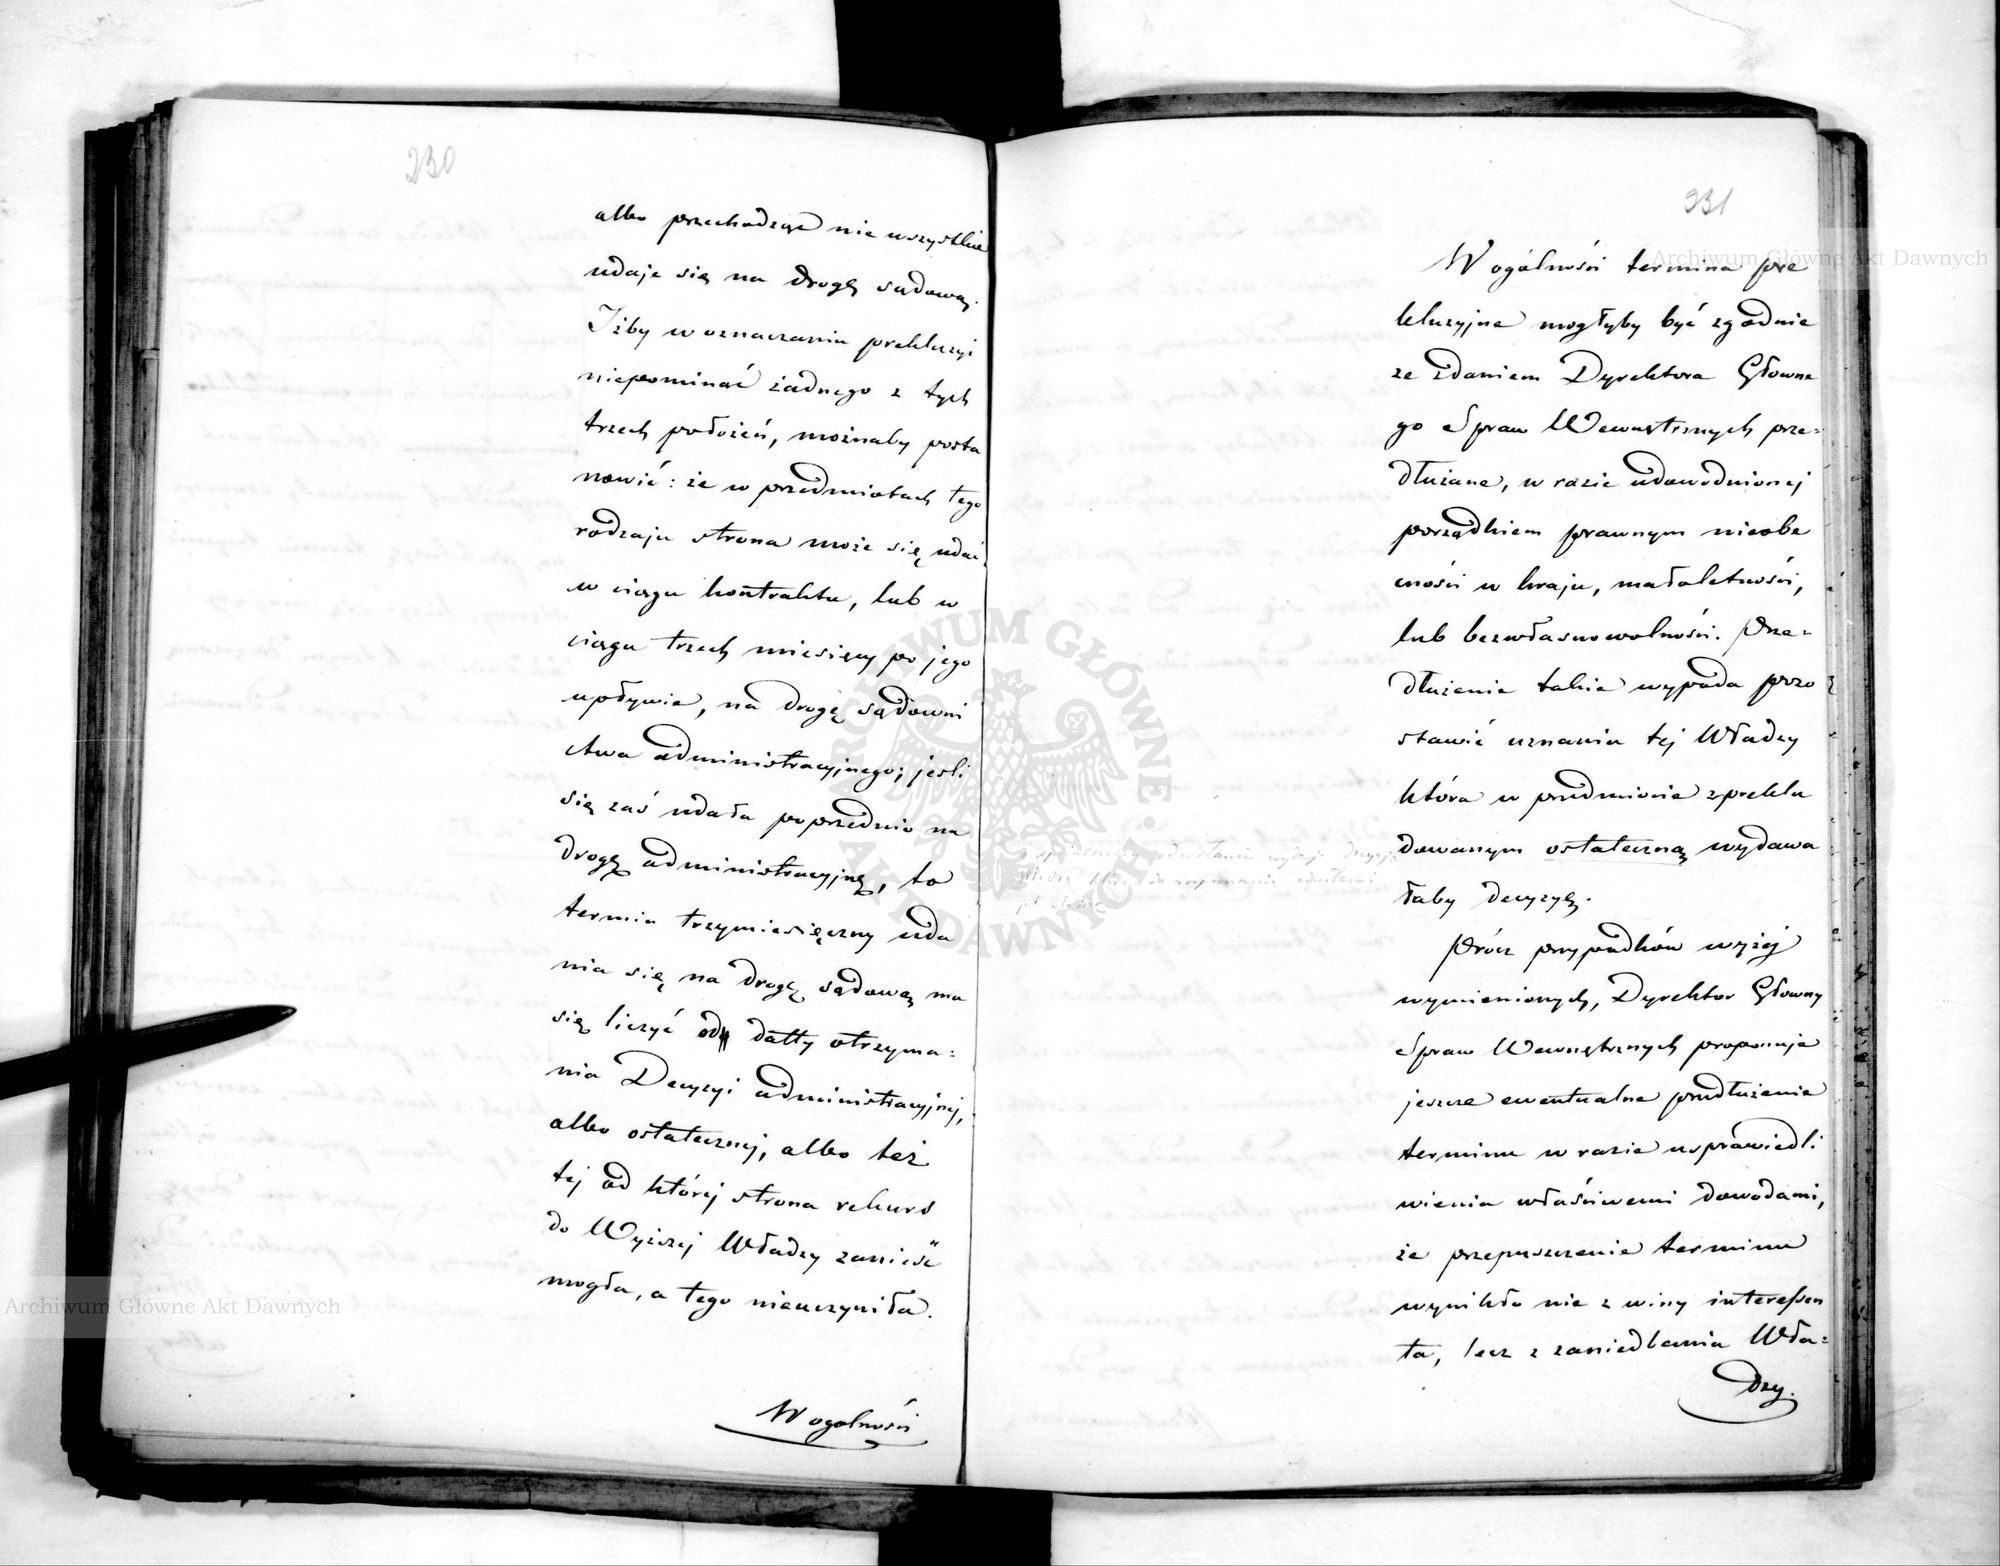 230
albo przechodząc nie wszystkie
udaje się na drogę sądową.
Iżby w oznaczaniu prekluzyi
niepominąć żadnego z tych
trzech położeń, możnaby posta
nowić: że w przedmiotach tego
rodzaju strona może się udać
w ciągu kontraktu, lub w
ciągu trzech miesięcy po jego
upływie, na drogę sądowni
ctwa administracyjnego; jeśli
się zaś udała poprzednio na
drogę administracyjną, to
termin trzymiesięczny uda
nia się na drogę sądową ma
się liczyć od datty otrzyma=
nia Decyzyi administracyjnej,
albo ostatecznej, albo też
tej od której strona rekurs
do Wyższej Władzy zanieść
mogła, a tego nieuczyniła.
Wogólności
231
Wogólności termina pre
kluzyjne mogłyby być zgodnie
ze zdaniem Dyrektora Główne
go Spraw Wewnętrznych prze=
dłużane, w razie udowodnionej
porządkiem prawnym nieobe
cności w kraju, małoletności,
lub bezwłasnowolności. Prze=
dłużenie takie wypada pozo
stawić uznaniu tej Władzy
która w przedmiocie zpreklu
dowanym ostateczną wydawa
łaby decyzyę.
Prócz przypadków wyżej
wymienionych, Dyrektor Główny
Spraw Wewnętrznych proponuje
jeszcze ewentualne przedłużenie
terminu w razie usprawiedli
wienia właściwemi dowodami,
że przepuszczenie terminu
wynikło nie z winy interessen
ta, lecz z zaniedbania Wła=
dzy.
Archiwum Główne Akt Dawnych
Archiwum Główne Akt Dawnych
ARCHIWUM GŁÓWNE AKT DAWNYCH